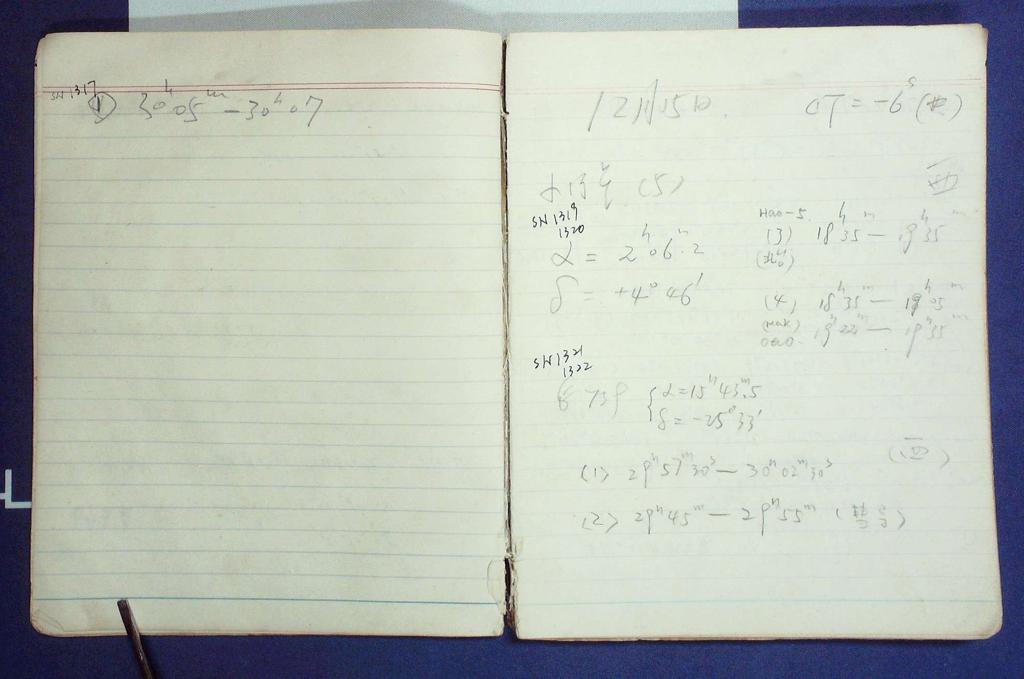 SN 1317
① 30h05m − 30h07
12月15日 ΔT = −6s
(5) 西
SN 1319
1320
α = 2h06m.2
δ = +4° 46′
(3) 18h35m − 19h35m
(4) 18h35m − 19h05m
19h22m − 19h55m
SN 1321
1322
739 { α = 15h43m.5
δ = −25°33′
(1) 29h57m30s − 30h02m30s (西)
(2) 29h45m − 29h55m